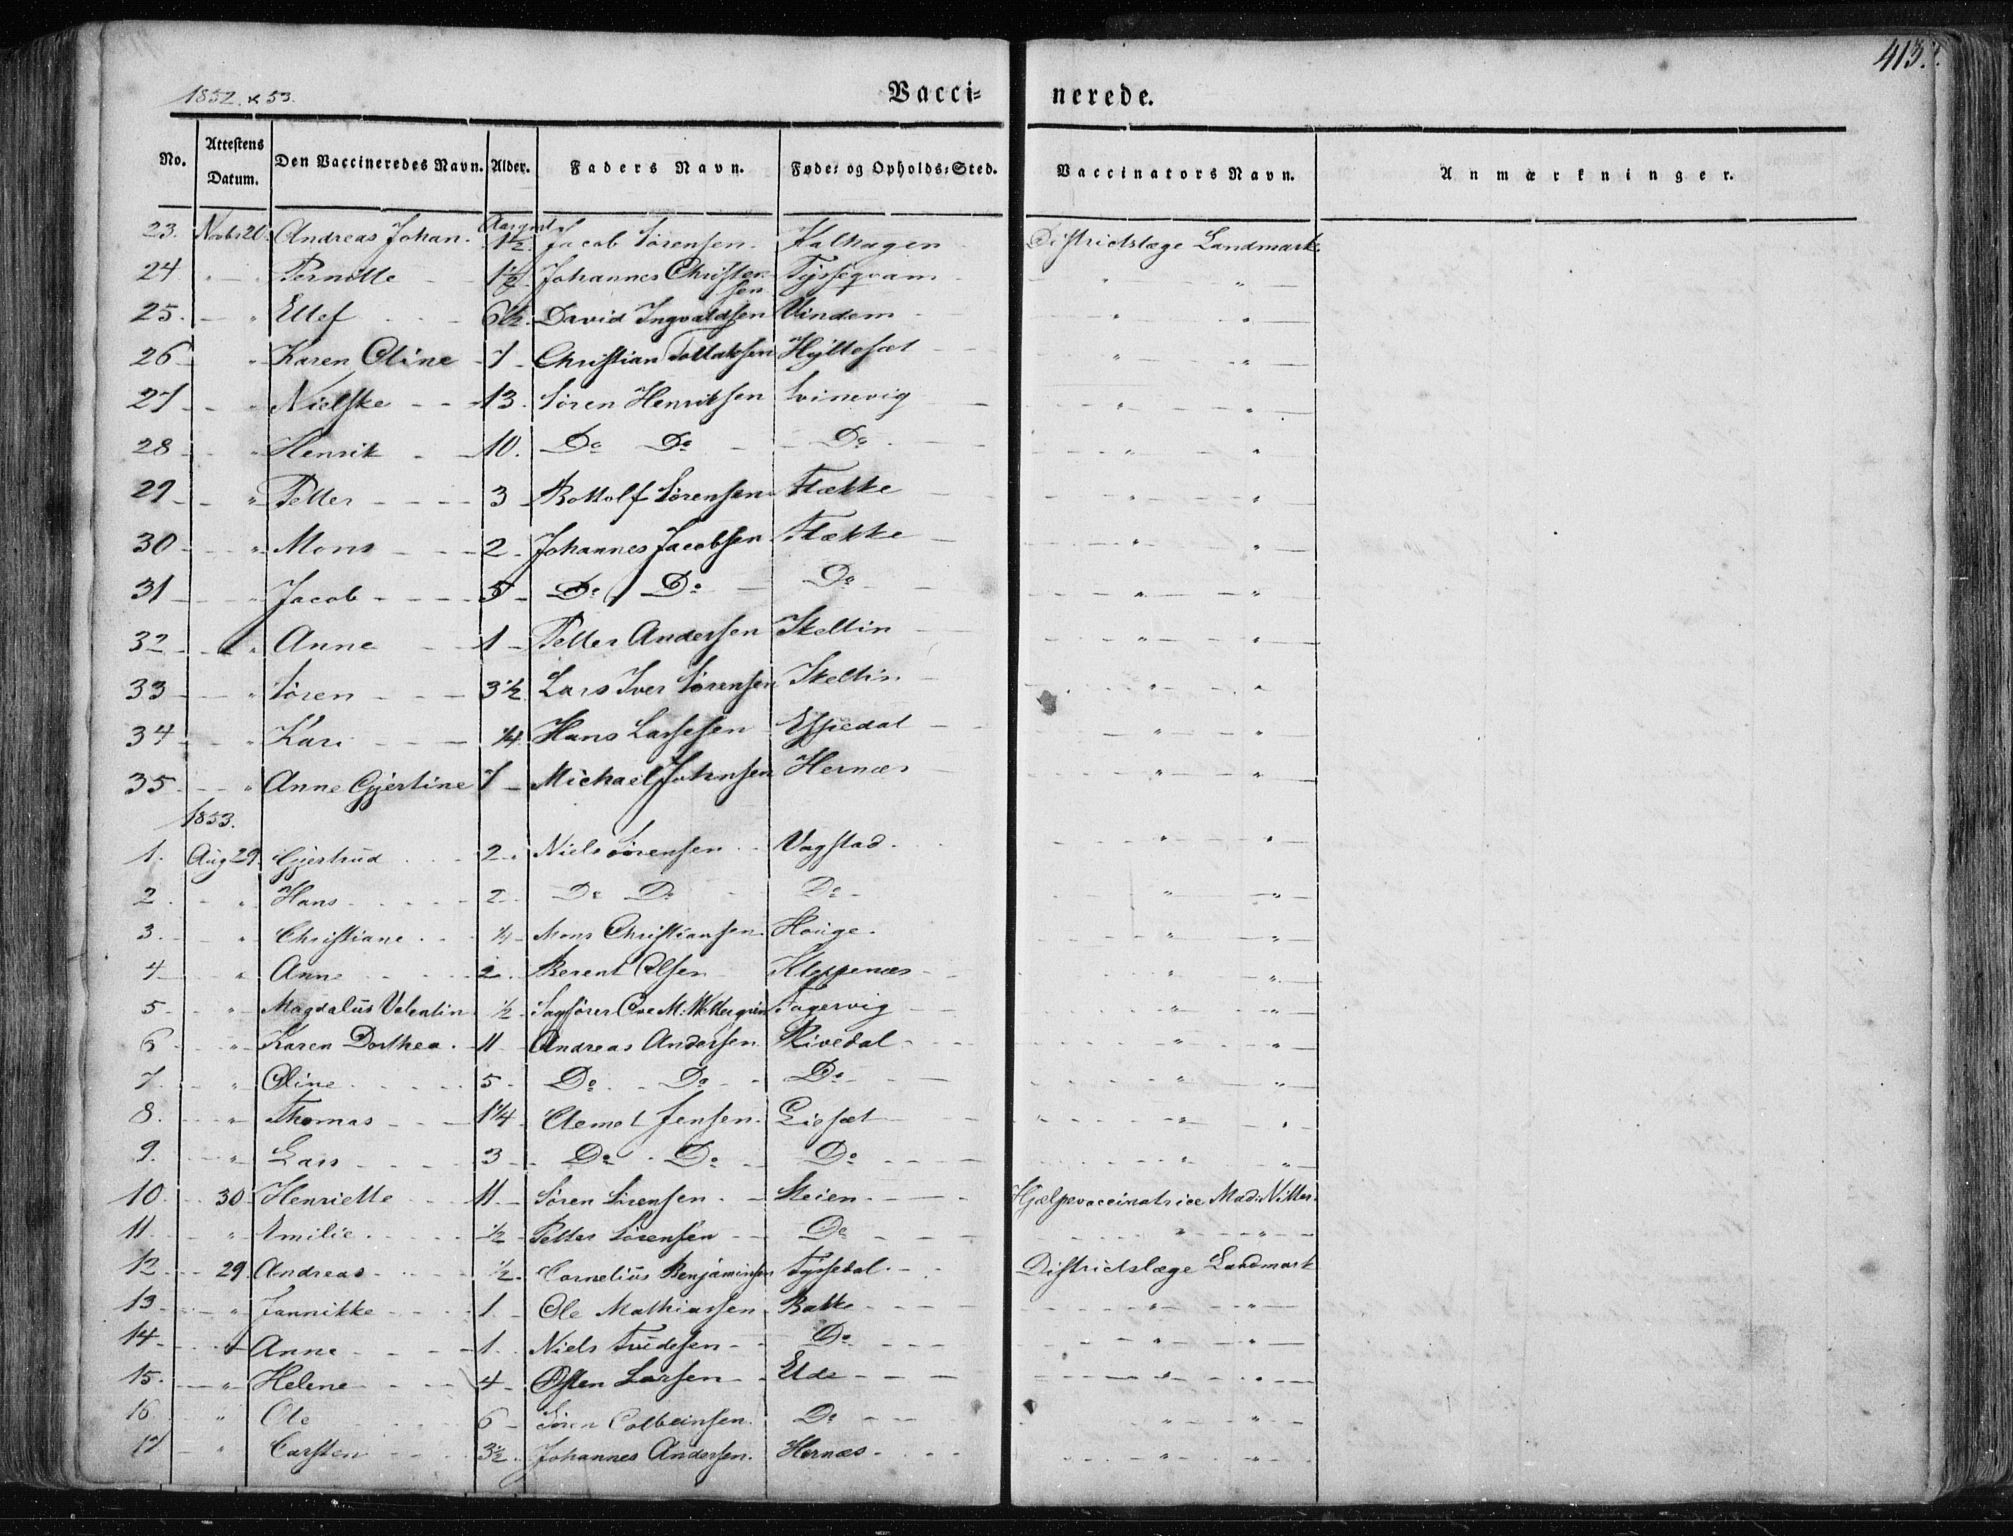 413.
1852. & 53.
Vacci- nerede.
No. Attestens Datum. Den Vaccineredes Navn. Alder. Faders Navn. Føde- og Opholds-Sted. Vaccinators Navn. Anmærkninger.
23. Novbr 20. Andreas Johan. Aar 1½. Jacob Sørensen. Districtslæge Landmark
24 " Pernille 1½. Johannes Christensen Tysseqvam " "
25. " Ellef 6½. David Ingvaldsen Vindem " "
26 " Karen Oline 7 Christian Hyllesæt " "
27 " Nielske 13. Søren Henriksen Svinevig " "
28 " Henrik 10. Do Do Do " "
29 " Petter 3 Bottolf Sørensen Flække " "
30 " Mons 2 Johannes Jacobsen Flække " "
31 " Jacob 5 Do Do Do " "
32 " Anne 1 Petter Andersen Skeltin " "
33 " Søren 3½. Lars Iver Sørensen Skeltin " "
34 " Kari ¼. Hans Larsesen Espedal " "
35 " Anne Gjertine 7 Michael Johnsen Hernæs " "
1853.
1. Aug 29. Gjertrud 2. Niels Sørensen Vagstad. " "
2. " Hans 2 Do Do Do " "
3. " Christiane ¼ Mons Christiansen Houge. " "
4 " Anne 2. Berent Olsen Kleppenæs " "
5 " Magdalus Valentin ½ Sagfører Ove M. Fagervig " "
6 " Karen Dorthea 11 Andreas Andersen Rivedal " "
7. " Oline 5 Do Do Do " "
8. " Thomas 1¼ Aamot Jensen. Liesæt " "
9. " Lars 3 Do Do Do " "
10. 30 Henriette 11 Søren Sørensen Steien Hjælpevaccinatrice Mad.
11. " Emilie ½ Petter Sørensen Do " "
12 29. Andreas ½. Cornelius Benjaminsen Tyssedal. Districtslæge Landmark
13 " Jannikke 1. Ole Mathiassen Bakke " "
14 " Anne 1. Niels Do " "
15. " Helene 4 Østen Larsen Elde " "
16. " Ole 6 Søren Colbeinsen Do " "
17 " Carsten 3½. Johannes Andersen. Hernæs. " "